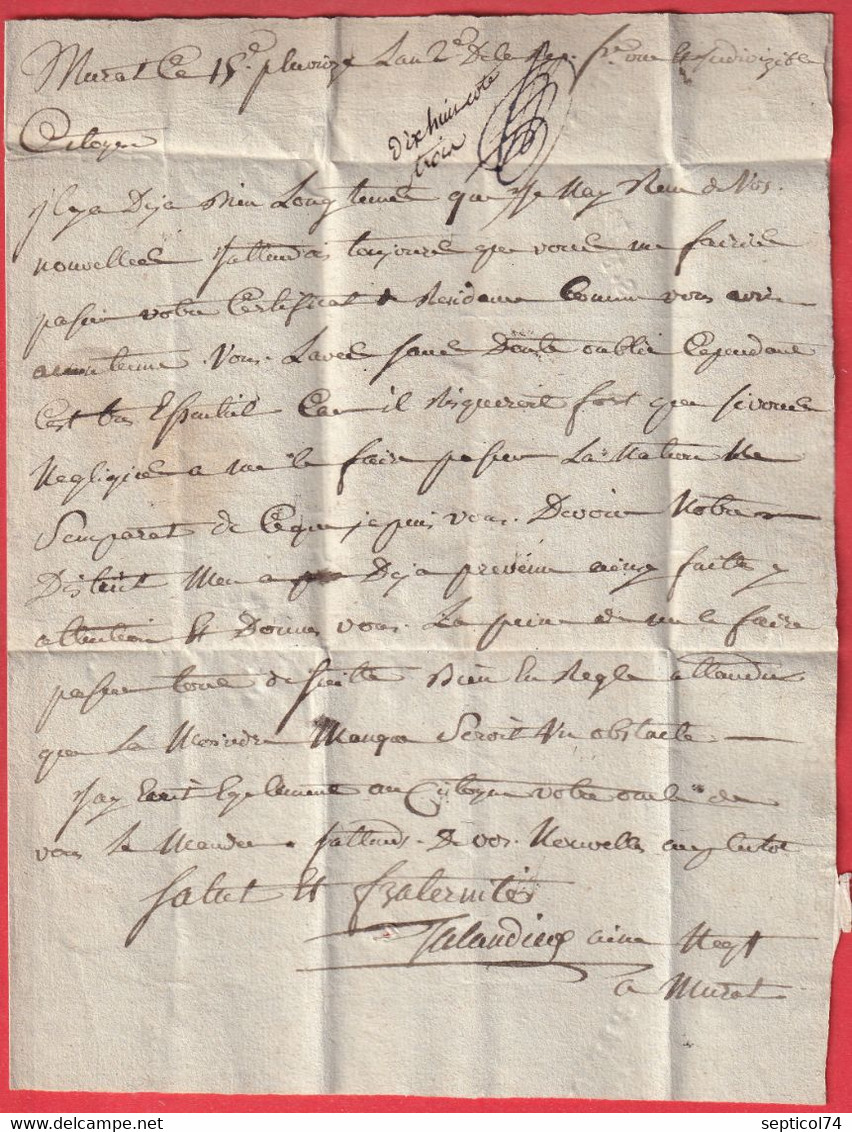 Murat Ce 15e. pluvioze Lan 2e. De la Rep. fse. une et indivizible
dix huit cote
troix
Citoyen
jl y a Deja Bien Longtems que je Nay Reçu de Vos
nouvelles jattendois toujours que vous me fairiés
passer votre Certificat de Residence Comme vous aviés
. Vous Lavés sans Doute oublié Cependant
Cest tres Essentiel Car il Risqueroit fort que si vous
Negligiés a me le faire passer La Nation Ne
Semparat de Ceque je puis vous Devoir Notre
District Men a Deja prevenu ainsy faitte y
attention Et Donnés vous La peine de me le faire
passer tous de suitte Bien En Regle attandu
que La Moindre Manque Seroit Un obstacle
Jay Ecrit Egalement au Citoyen votre oncle de
vous le Mander jattends De vos Nouvelles auplutot
Salut Et fraternité
Talandier ainé Negt
a Murat
septicol74